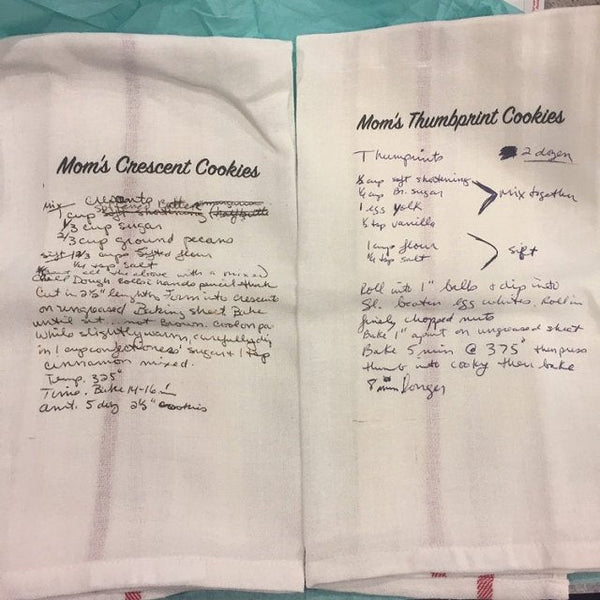 Mom's Crescent Cookies
Mix Crescents Butter
1 cup soft shortening (half butter
1/3 cup sugar
2/3 cup ground pecans
sift 1 2/3 cups Sifted flour
1/4 tsp salt
all the above with a mixed
Dough Roll in hands pencil thick
Cut in 2½" lengths Form into crescents
on ungreased Baking sheet Bake
until set.. not Brown. cool on pa
While slightly warm, carefully dip
in 1 cup confectioners' sugar & 1 tsp
cinnamon mixed.
Temp. 325°
Time. Bake 14-16
amt. 5 doz 2½" cookies
Mom's Thumbprint Cookies
Thumprints 2 dozen
soft shortening
¼ cup Br. sugar
1 egg yolk
½ tsp vanilla
Mix together
1 cup flour
¼ tsp salt
Sift
Roll into 1" balls & dip into
Sl. beaten egg whites. Roll in
finely chopped nuts
Bake 1" apart on ungreased sheet
Bake 5 min @ 375° then press
thumb into cooky then bake
8 min longer